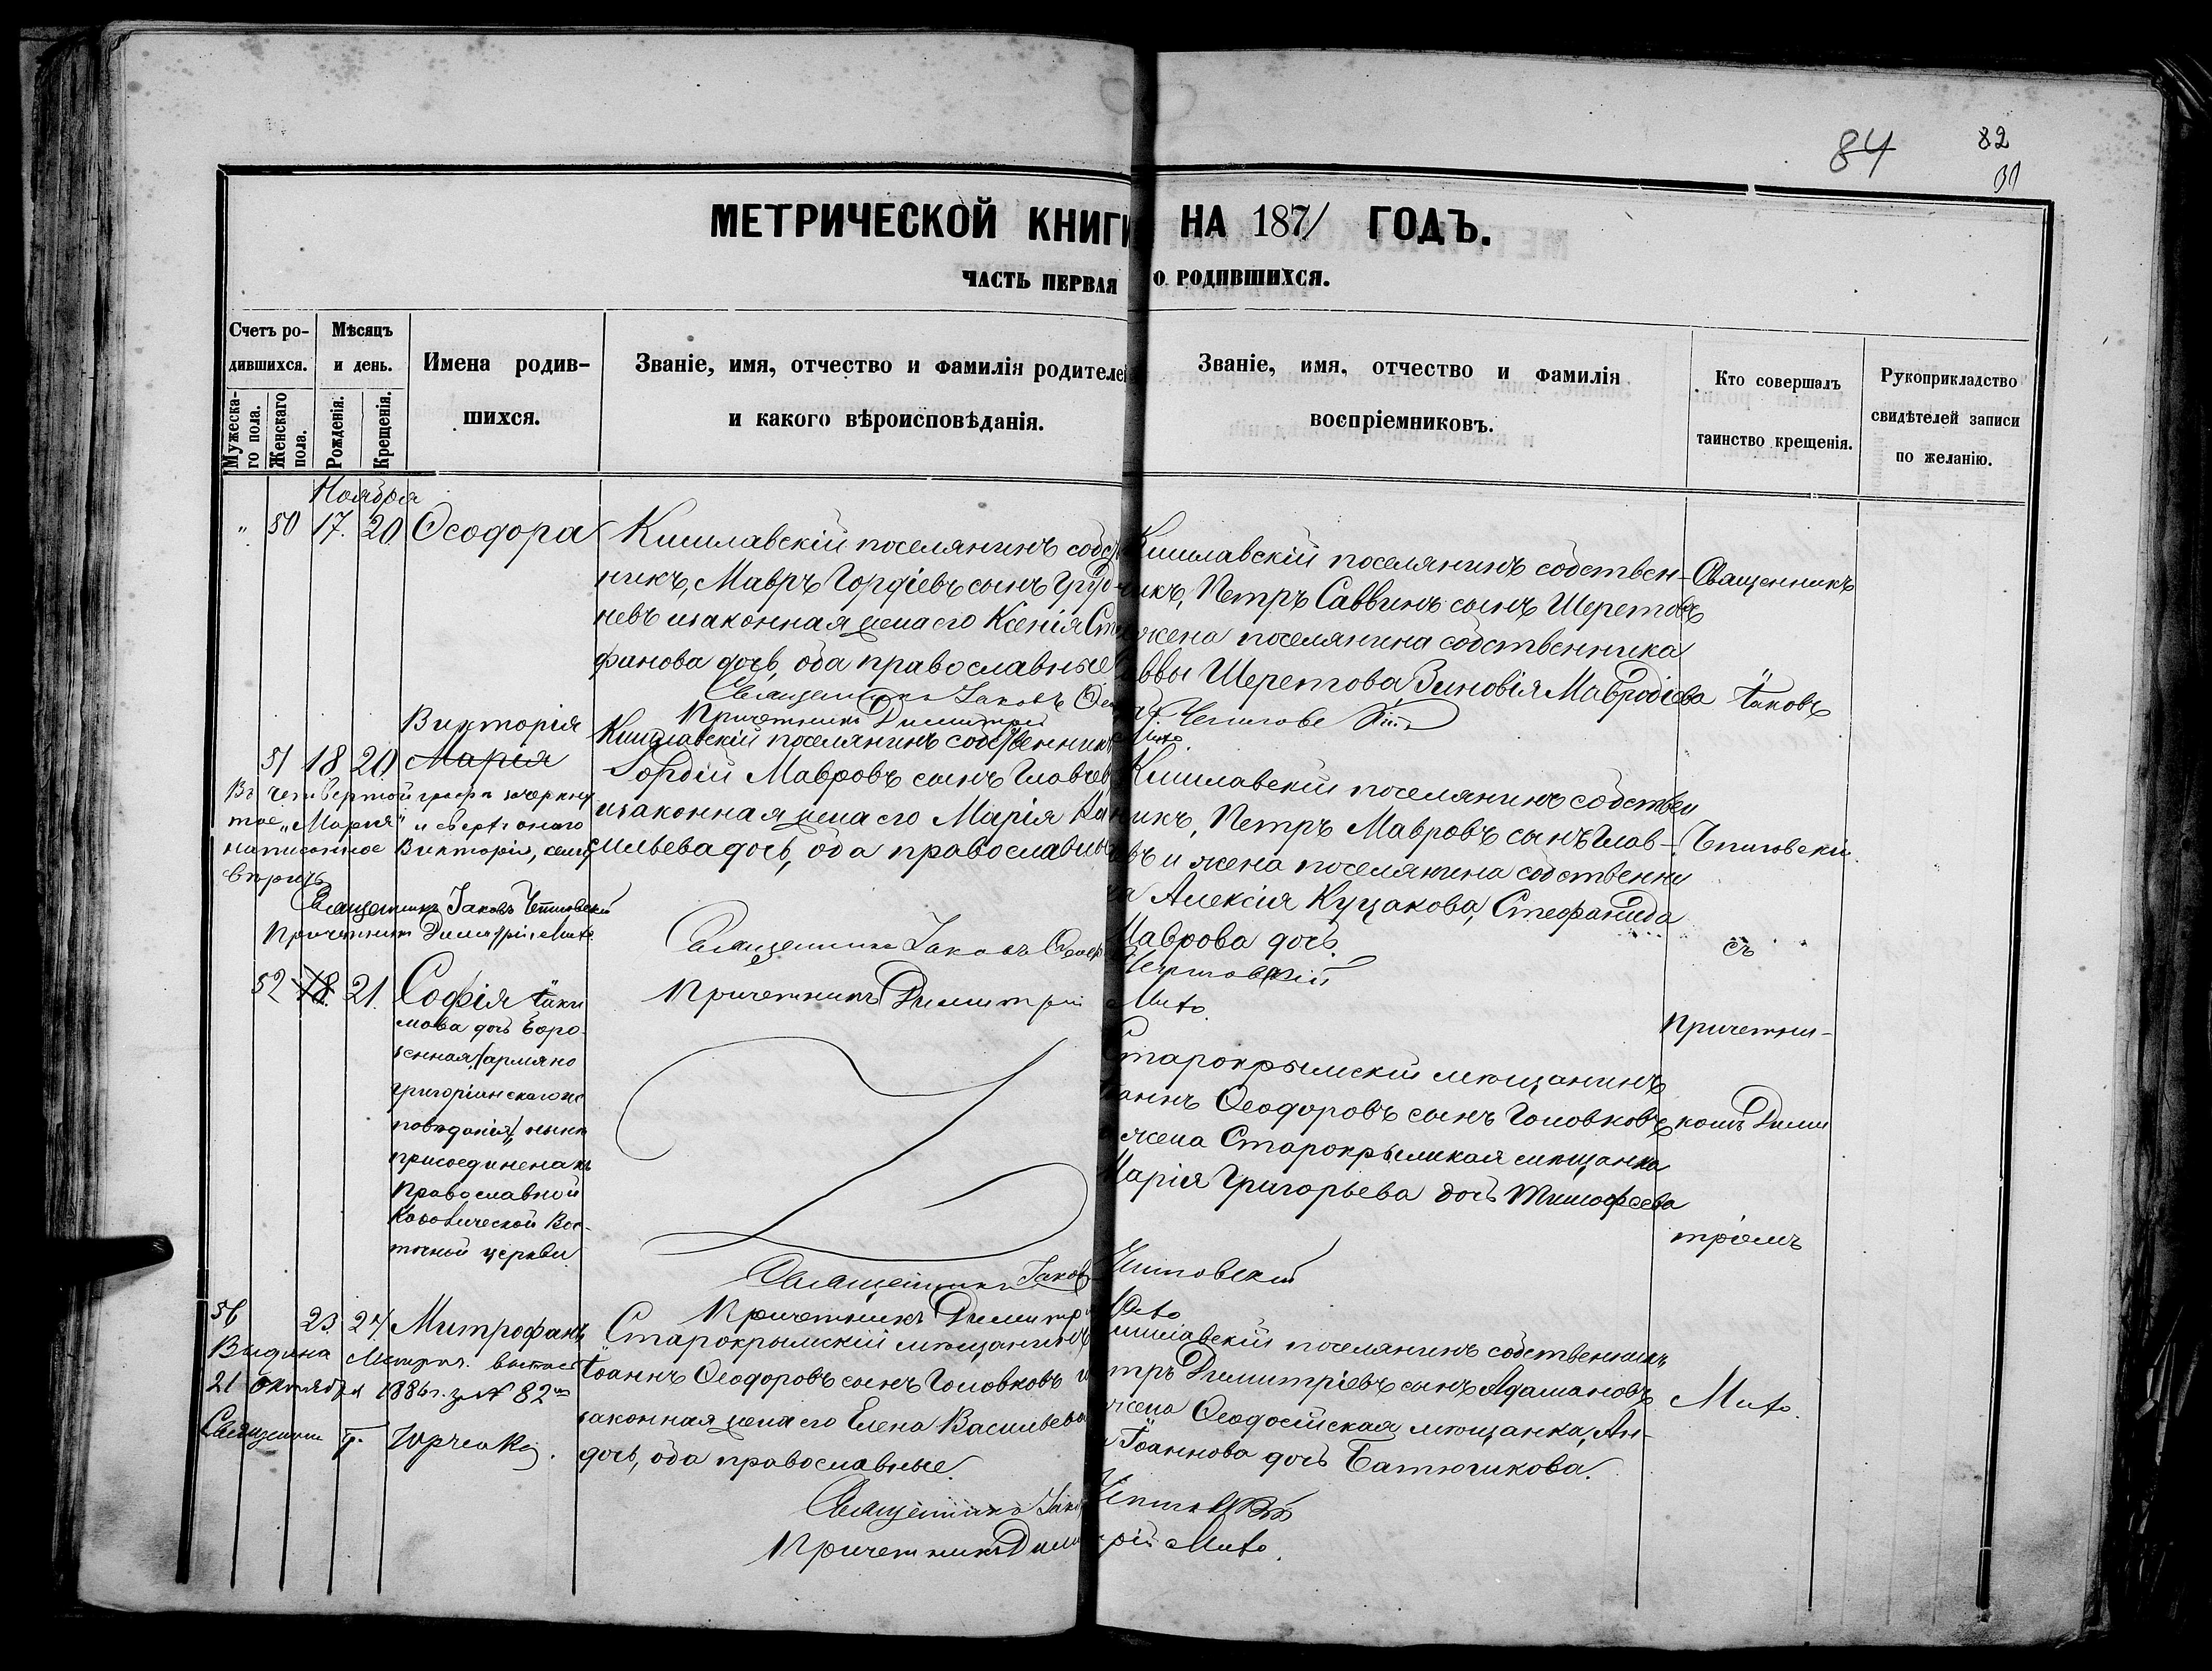 84
82
МЕТРИЧЕСКОЙ КНИГИ НА 1871 ГОДЪ.
ЧАСТЬ ПЕРВАЯ О РОДИВШИХСЯ.
Счетъ ро-
дившихся.
Мужеска-
го пола.
Женскаго
пола.
Мѣсяцъ
и день.
Рожденія.
Крещенія.
Имена родив-
шихся.
Званіе, имя, отчество и фамилія родителей
и какого вѣроисповѣданія.
Званіе, имя, отчество и фамилія
воспріемниковъ.
Кто совершалъ
таинство крещенія.
Рукоприкладство
свидѣтелей записи
по желанію.
Ноября
" 50 17. 20 Ѳеодора
Кишлавскій поселянинъ собст
никъ, Мавръ Гордіевъ сынъ
невъ изаконная жена его Ксенія Сте
фанова дочь, оба православные
Кишлавскій поселянинъ собствен-
никъ, Петръ Саввинъ сынъ Шеретовъ
жена поселянина собственника
Саввы Шеретова Зиновія Мавродіева
Священникъ Іаковъ
Причетникъ Димитрій Мито.
51 18 20 Викторія
Марія
Кишлавскій поселянинъ собственникъ
Гордій Мавровъ сынъ Главчев
изаконная жена его Марія Ва
сильева дочь, оба православны
Кишлавскій поселянинъ собствен
никъ, Петръ Мавровъ сынъ Глав-
евъ и жена поселянина собственни
ка Алексія Куцакова, Стефанида
Маврова дочь.
Въ четвертой графѣ зачеркну
тое „Марія" и сверхъ онаго
написанное Викторія, сему
вѣрить
Священникъ Іаковъ Чепиговскій
Причетникъ Димитрій Мито.
Священникъ Іаковъ Чепиговскій
Причетникъ Димитрій Мито.
52 18. 21. Софія Іаки
мова дочь
/армяно
григоріанскаго ис
повѣданія/ нынѣ
присоединена къ
Православной
Каѳолической Вос-
точной церкви
Старокрымскій мѣщанинъ
Іоаннъ Ѳеодоровъ сынъ Головковъ
и жена Старокрымская мѣщанка
Марія Григорьева дочь Тимофеева
Священникъ Іаковъ Чепиговскій
Причетникъ Димитрій Мито
56 23. 24 Митрофанъ
Старокрымскій мѣщанинъ
Іоаннъ Ѳеодоровъ сынъ Головковъ и
законная жена его Елена Васильева
дочь, оба православные.
Кишлавскій поселянинъ собственникъ
Петръ Димитріевъ сынъ Адамановъ
жена Ѳеодосійская мѣщанка, Ан-
на Іоаннова дочь Батюшкова.
Выдана Метрич. выпись
21 Октября 1886 г. за № 82
Священникъ
Священникъ Іаковъ
Причетникъ Димитрій Мито.
Священникъ
Іаковъ
Чепиговскій
съ
Причетни-
комъ Дими
тріемъ
Мито.